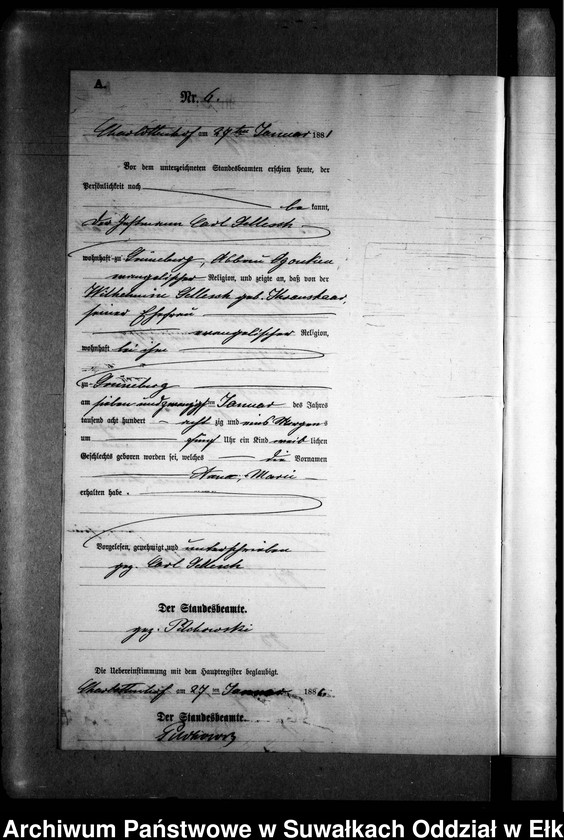 A.
Nr. 6.
Charlottenhof am 29ten Januar 1881
Vor dem unterzeichneten Standesbeamten erschien heute, der
Persönlichkeit nach
be kannt,
der Carl
wohnhaft zu Grüneberg, Abbau
evangelischer Religion, und zeigte an, daß von der
Wilhelmine geb.
seiner Ehefrau
evangelischer Religion,
wohnhaft bei ihm
zu Grüneberg
am sieben und zwanzigsten Januar des Jahres
tausend acht hundert acht zig und eins Morgens
um fünf Uhr ein Kind weib lichen
Geschlechts geboren worden sei, welches die Vornamen
Marie
erhalten habe.
Vorgelesen, genehmigt und unterschrieben
gez. Carl
Der Standesbeamte.
gez.
Die Uebereinstimmung mit dem Hauptregister beglaubigt.
Charlottenhof am 27 ten Januar 188
Der Standesbeamte.
Archiwum Państwowe w Suwałkach Oddział w Ełk